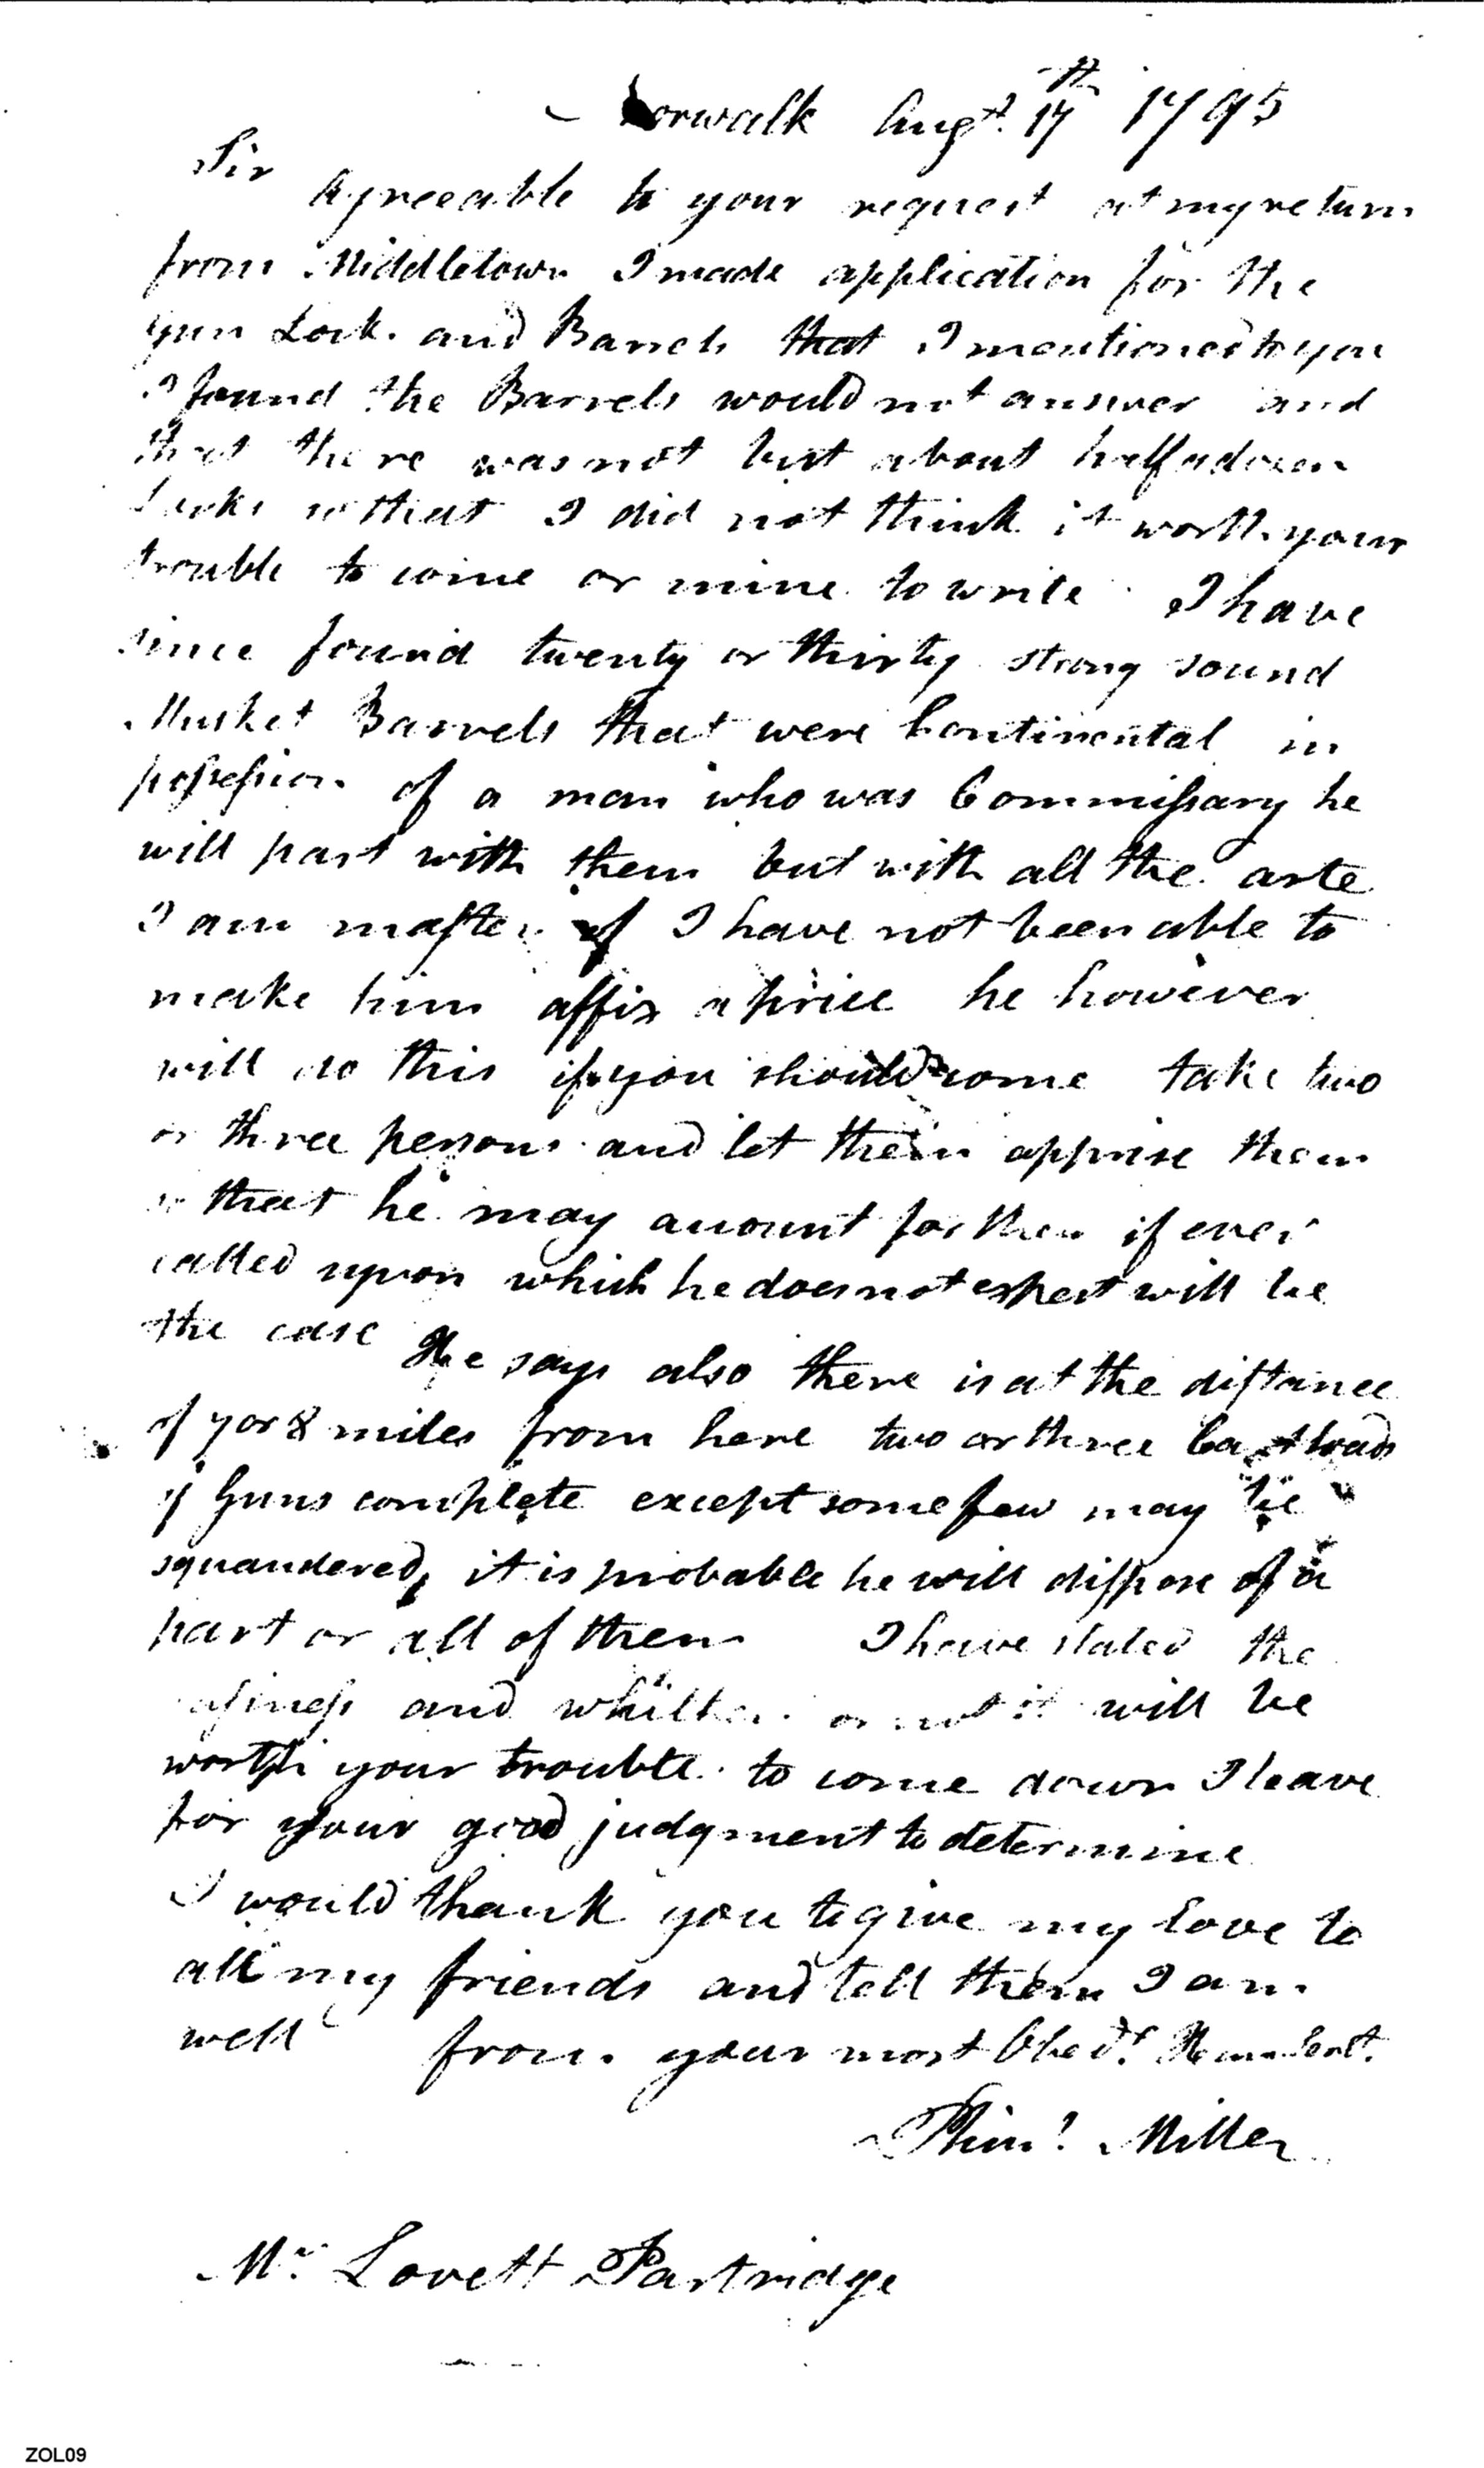 Norwalk Augt. 17th 1795
Sir
Agreeable to your request at my return
from Middletown I made application for the
Gun Locks and Barrels that I mentioned to you
I found the Barrels would not answer and
that there was not but about half a dozen
Locks so that I did not think it worth your
trouble to come or mine to write I have
since found twenty or thirty strong sound
Musket Barrels that were Continental in
possession of a man who was Commissary he
will part with them but with all the arte
I am master of I have not been able to
make him affix a price he however
will do this if you should come take two
or three persons and let them apprise them
so that he may account for them if ever
called upon which he does not expect will be
the case He says also there is at the distance
of 7 or 8 miles from here two or three Cartloads
of Guns complete except some few may be
squandered, it is probable he will dispose of a
part or all of them I have stated the
business and whither or not it will be
worth your trouble to come down I leave
for your good judgment to determine
I would thank you to give my Love to
all my friends and tell them I am
well from your most Obedt. Humb Servt.
Miller
Mr. Lovett Partridge
ZOL09